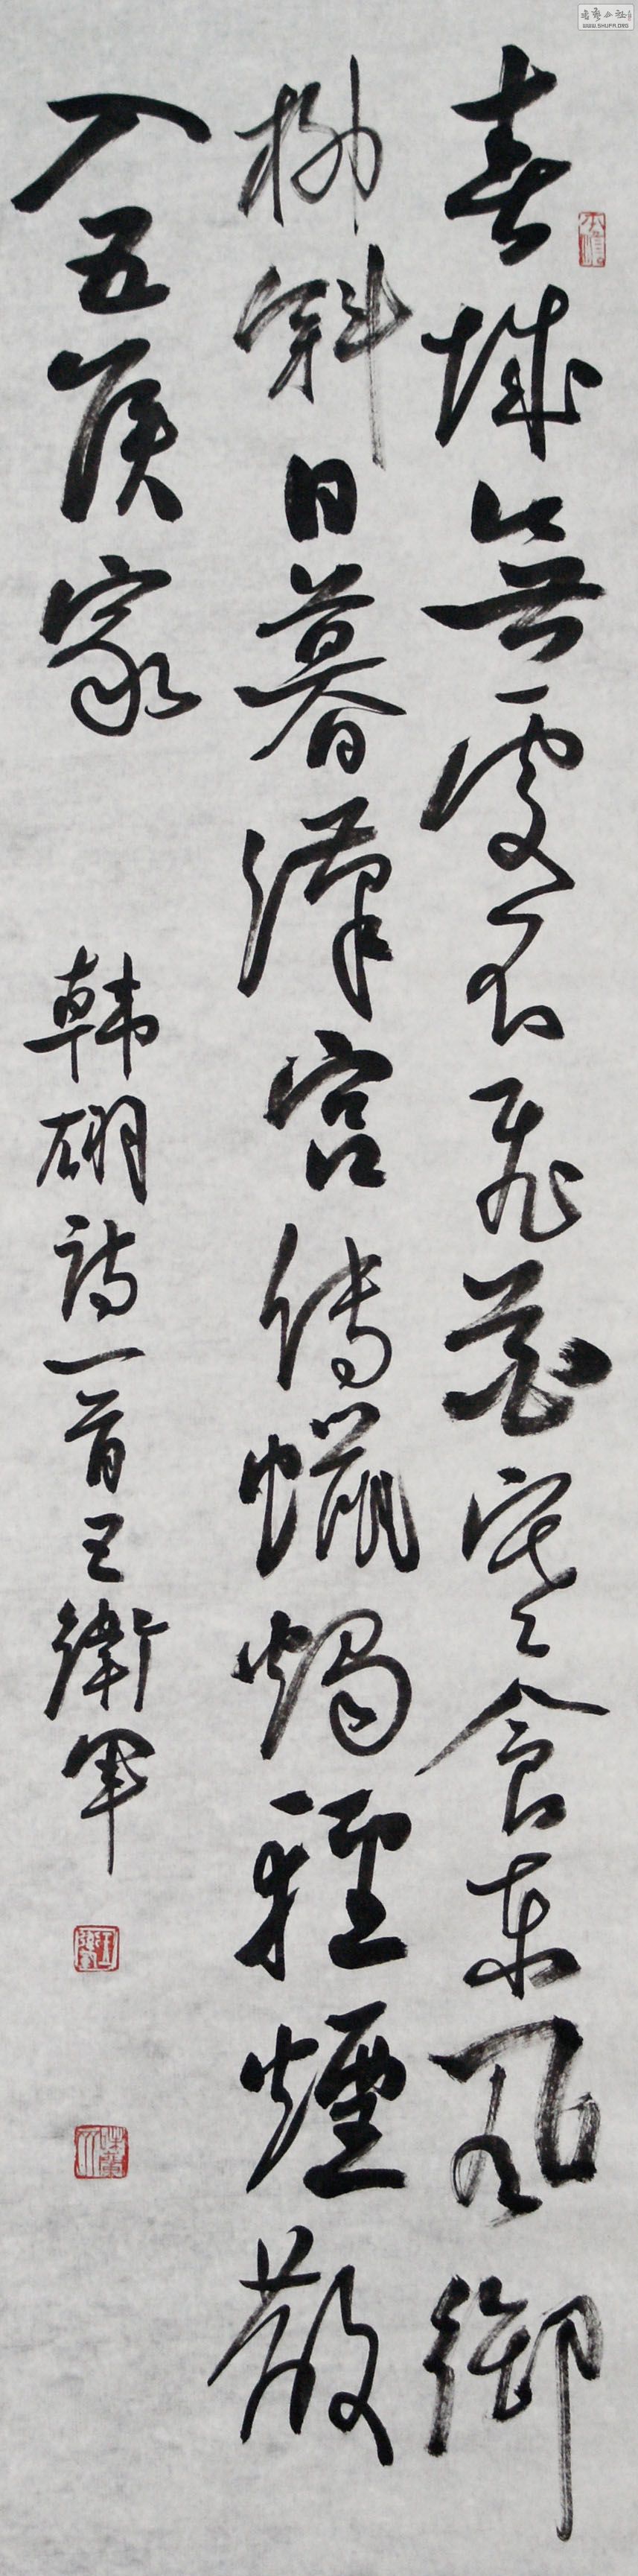 春城無處不飛花寒食東風御
柳斜日暮漢宮傳蠟燭輕煙散
入五侯家
韩翃詩一首王衛軍
WWW.SHUFA.ORG